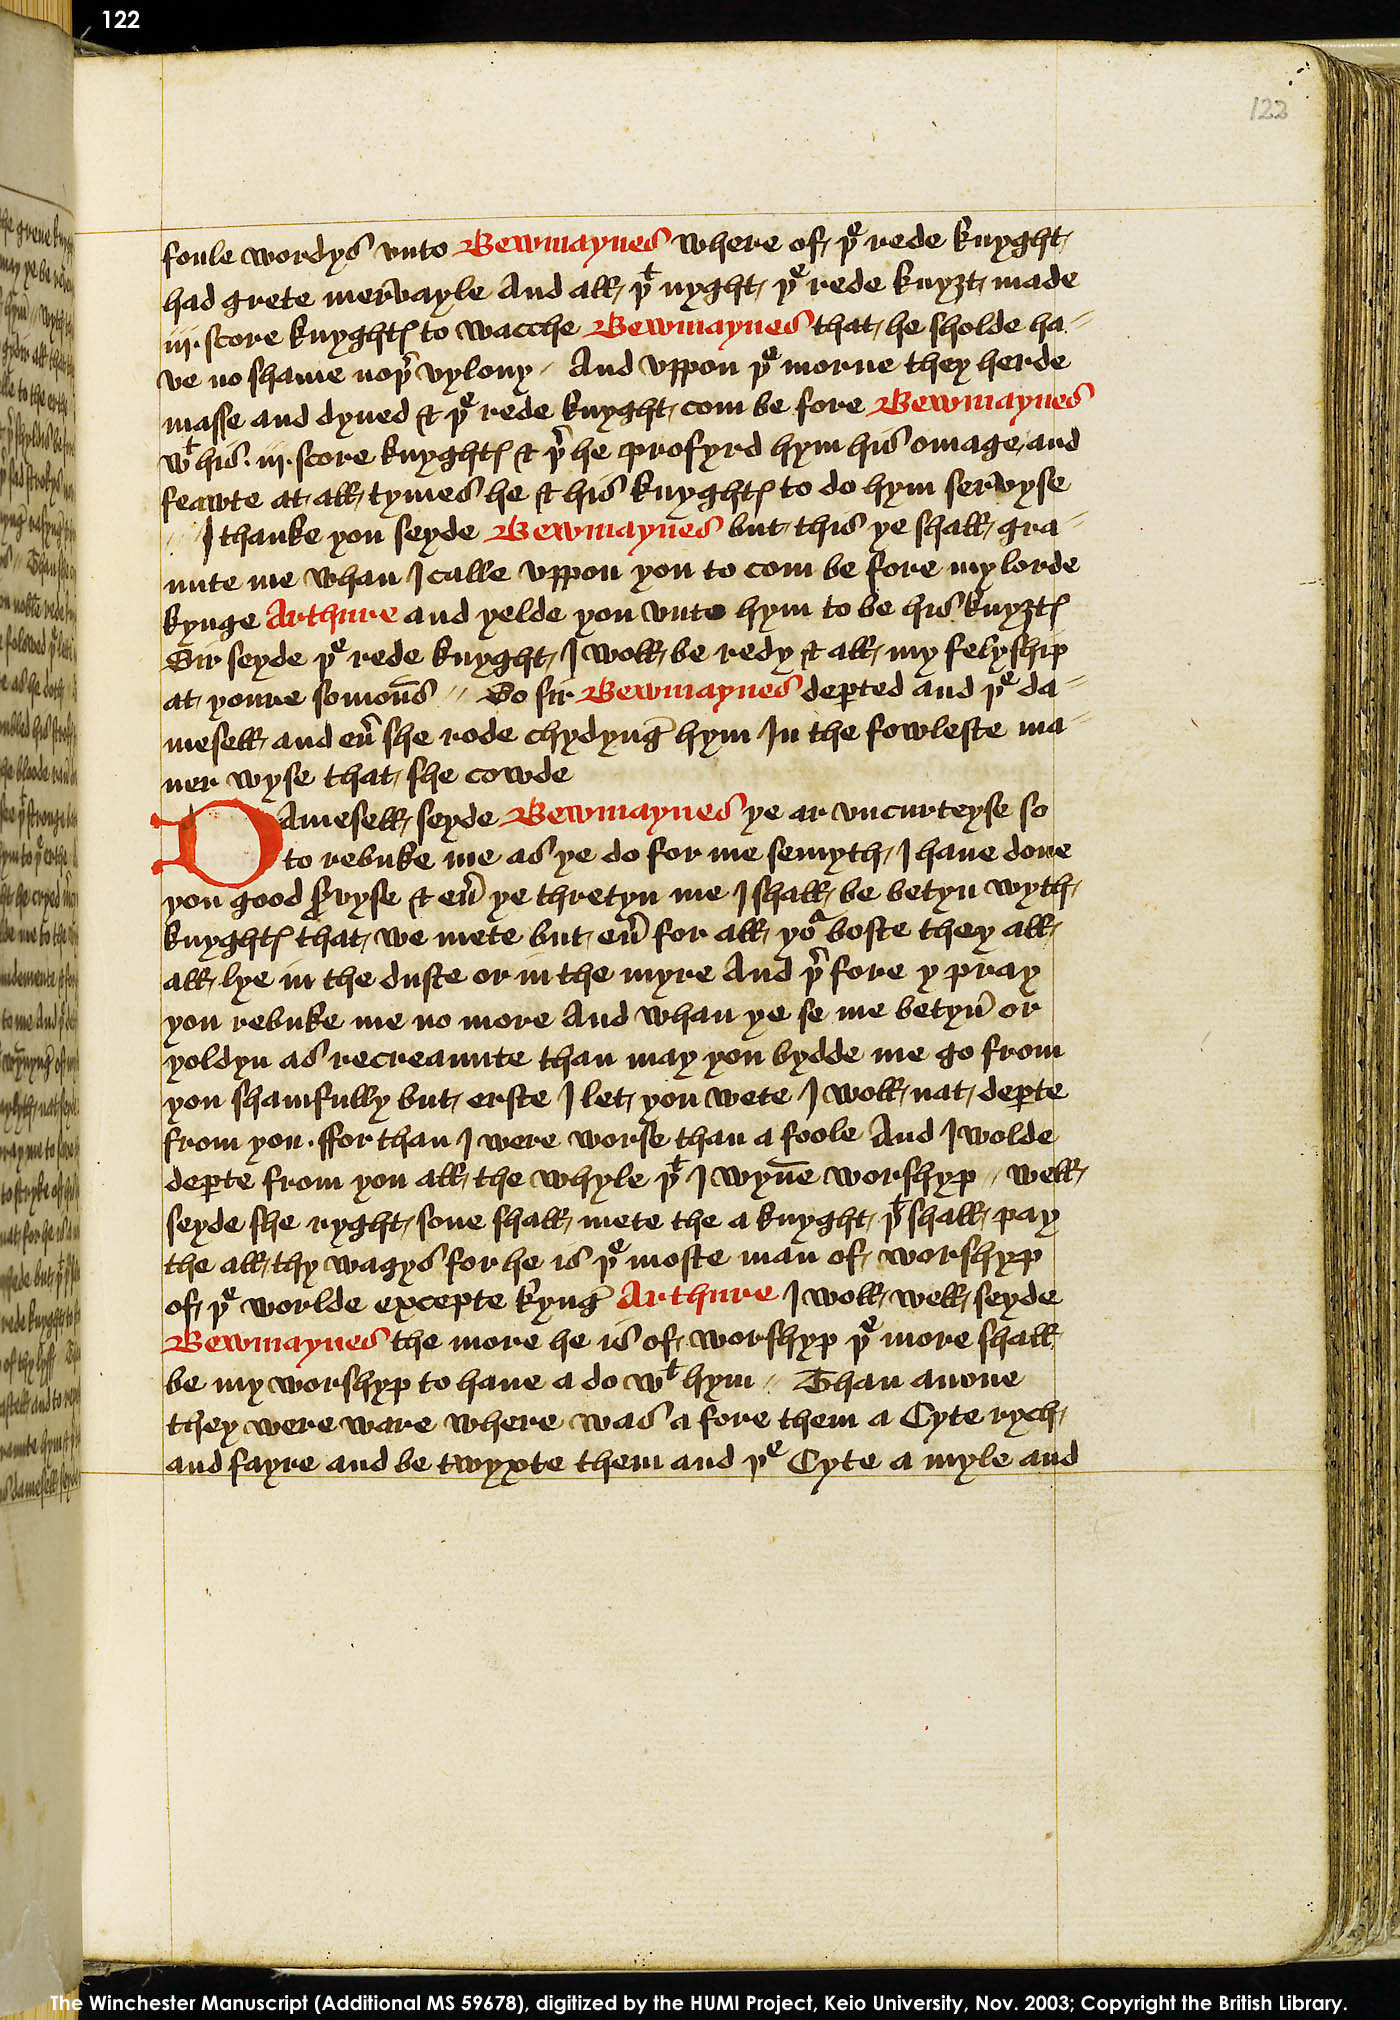 122
122
foule wordys vnto Bewmaynes where of þe rede knyght
had grete mervayle And all þt nyght þe rede knyȝt made
iij score knyghtes to wacche Bewmaynes that he sholde ha⸗
ve no shame noþr vylony // And vppon þe morne they herde
masse and dyned & þe rede knyght com be fore Bewmaynes
wt his .iij. score knyghtes & þr he profyrd hym his omage and
feawte at all tymes he & his knyghtes to do hym servyse
// I thanke you seyde Bewmaynes but this ye shall gra⸗
unte me whan I calle vppon you to com be fore my lorde
kynge Arthure and yelde you vnto hym to be his knyȝtes
Sir seyde þe rede knyght I woll be redy & all my felyship
at youre somōns // So sir Bewmaynes deꝑted and þe da⸗
mesell and eũ she rode chydyng hym In the fowleste ma⸗
ner wyse that she cowde
DAmesell seyde Bewmaynes ye ar vncurteyse so
to rebuke me as ye do for me semyth I haue done
you good s̉vyse & eũ ye thretyn me I shall be betyn wyth
knyghtes that we mete but eũ for all yor boste they all
all lye in the duste or in the myre And þr fore y pray
you rebuke me no more And whan ye se me betyn̄ or
yoldyn as recreaunte than may you bydde me go from
you shamfully but erste I let you wete I woll nat deꝑte
from you . ffor than I were worse than a foole And I wolde
deꝑte from you all the whyle þt I wyn̄e worshyp // well
seyde she ryght sone shall mete the a knyght þt shall pay
the all thy wagys for he is þe moste man of worshyp
of þe worlde excepte kyng Arthure I woll well seyde
Bewmaynes the more he is of worshyp þe more shall
be my worshyp to haue a do wt hym // Than anone
they were ware where was a fore them a Cyte rych
and fayre and be twyxte them and þe Cyte a myle and
The Winchester Manuscript (Additional MS 59678), digitized by the HUMI Project, Keio University, Nov. 2003; Copyright the British Library.